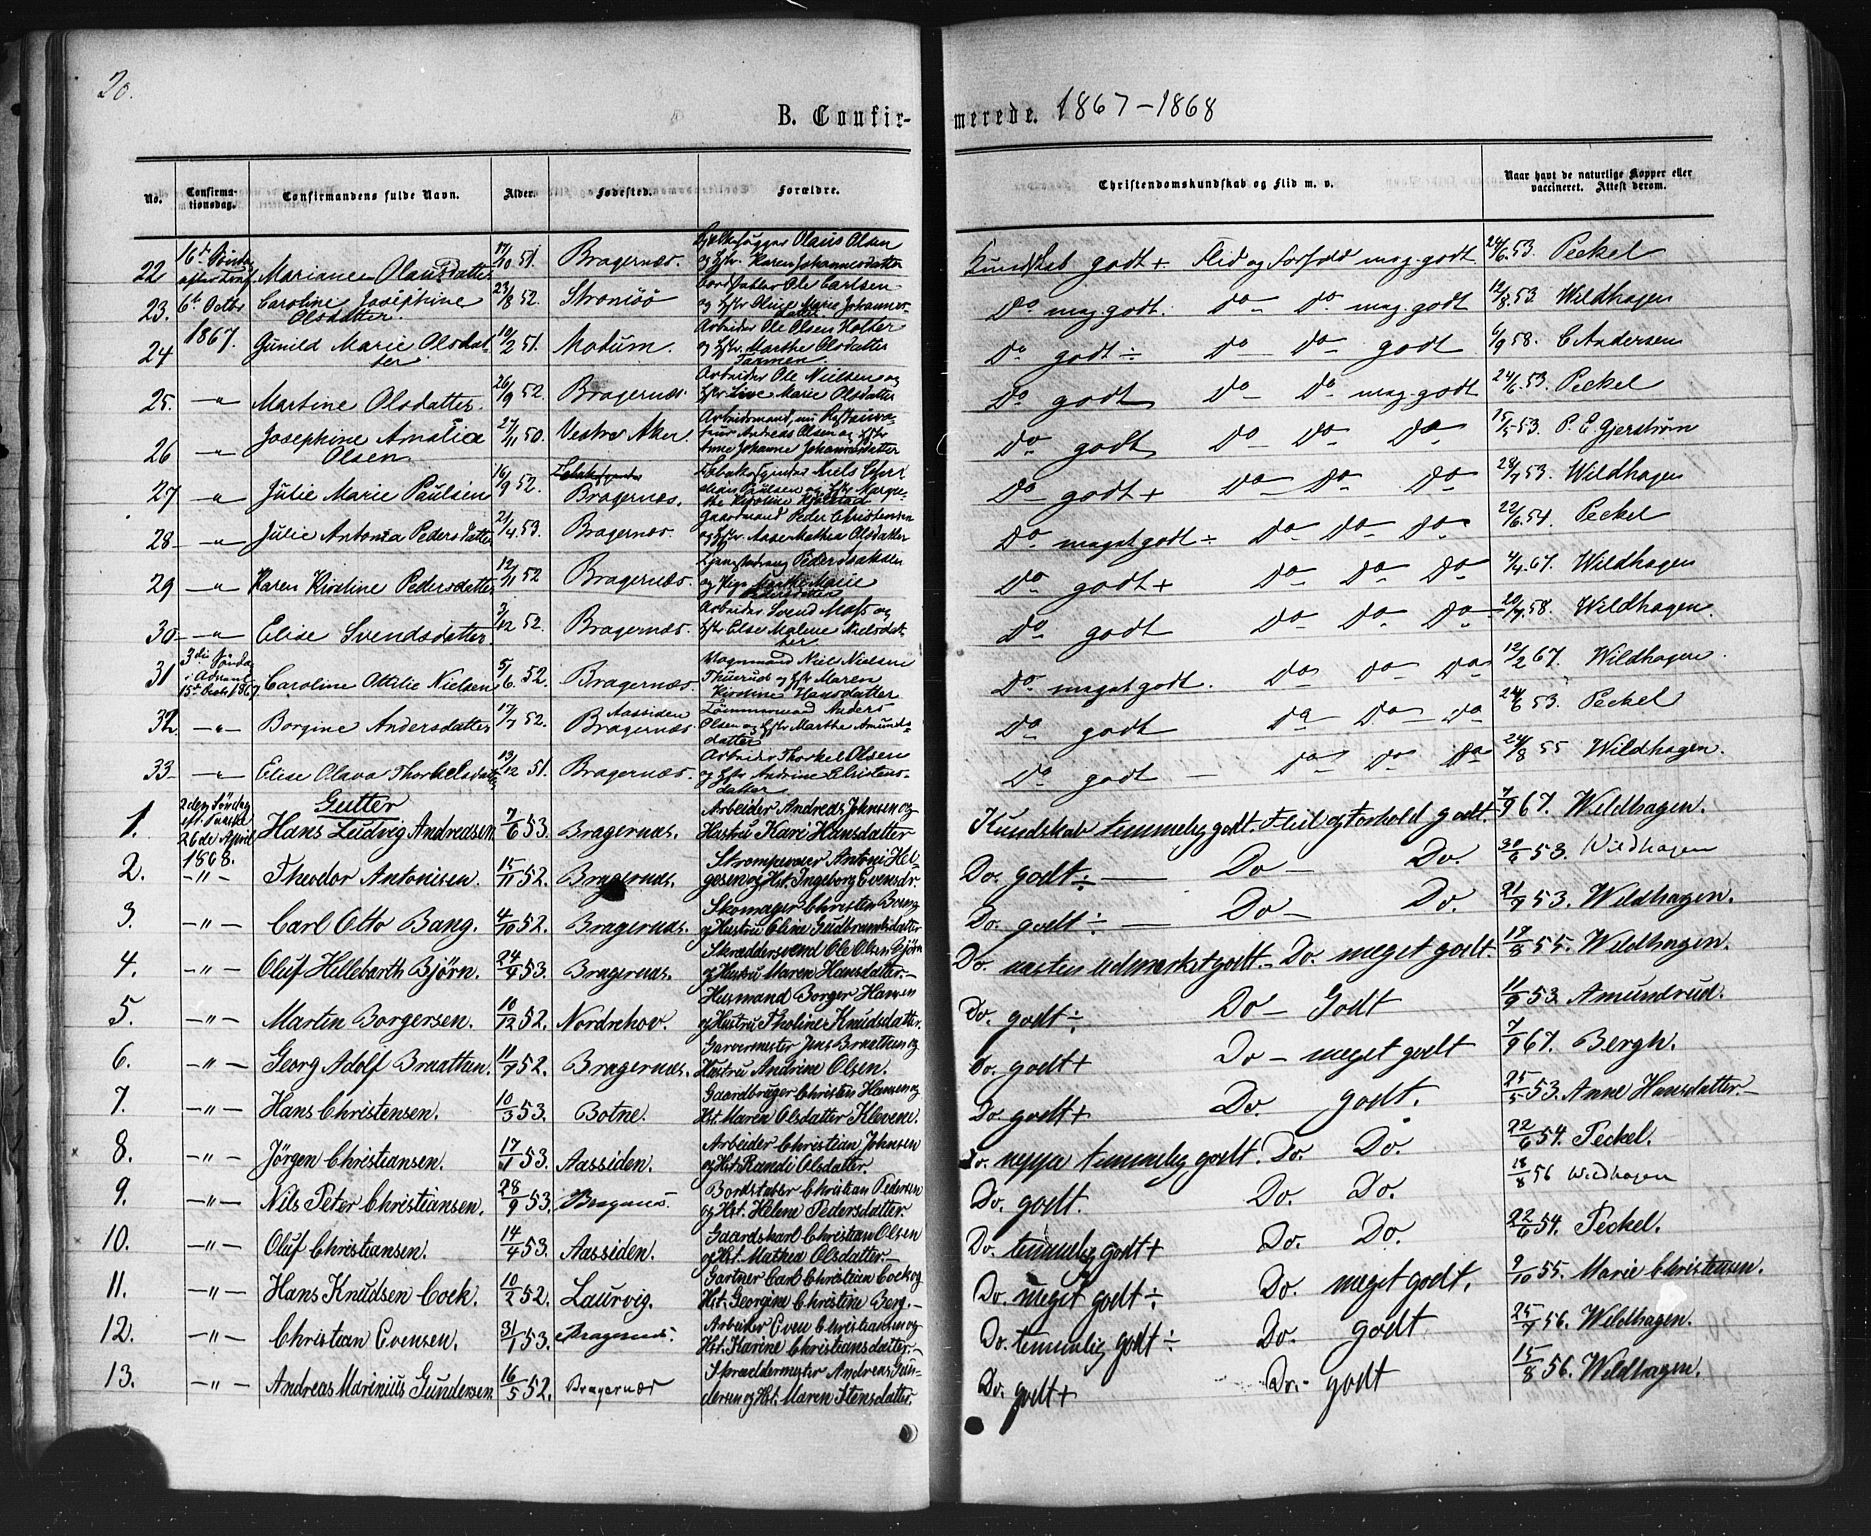 20.
B. Confir-
merede. 1867-1868
No. Confirma-tionsdag. Confirmandens fulde Navn. Alder. Fødested. Forældre. Christendomskundskab og Flid m. v. Naar havt de naturlige Kopper eller vaccineret. Attest derom.
22 16de Søndag efter Marianne Olausdatter 51. Bragernæs. Olaus Olsen og Hstr. Karen Johannesdatter Kundskab godt + Flid og Forhold meg. godt 24/6 53. Peckel
23. 6te Octbr Caroline Josephine Olsdatter. 23/8 52. Strømsø Ole Carlsen og Hstr Oline Marie Johannesdatter Do meg. godt. Do Do meg godt 12/8 53. Wildhagen
24 1867. Gunild Marie Olsdatter 10/2 51. Modum. Arbeider Ole Olsen Holter og Hstr. Marthe Olsdatter Do godt ÷ Do Do godt 6/9 58. C Andersen
25. -"- Martine Olsdatter. 26/9 52. Bragernæs. Arbeider Ole Nielsen og Hstr Live Marie Olsdatter Do godt Do Do meg godt 24/6 53. Peckel
26 -"- Josephine Amalia Olsen 27/11 50. Vestre Aker. Arbeidsmand, nu Andreas Olsen og Hstr Anne Johanne Johannesdatter Do godt Do Do Do 53. P. E. Gjerstrøm
27 -"- Julie Marie Paulsen 16/9 52. Bragernæs. Niels Christian Paulsen og Hstr Kirstine Do godt + Do Do Do 28/7 53. Wildhagen
28 -"- Julie Antonia Pedersdatter 21/4 53. Bragernæs. Gaardmand Peder Christensen og Hstr. Aase Mathea Olsdatter Do meget godt ÷ Do Do Do 22/6 54. Peckel
29 -"- Karen Kirstine Pedersdatter 12/11 52 Bragernæs. Peder Isaksen og Pige Marthe Marie Do godt + Do Do Do 4/4 67. Wildhagen
30 -"- Elise Svendsdatter 3/12 52. Bragernæs. Arbeider Svend og Hstr Else Malene Nielsdatter Do godt Do Do Do 20/7 58. Wildhagen.
31 3die Søndag i Advent 15de Decbr 1867 Caroline Ottilie Nielsen 5/6 52. Bragernæs. Vognmand Niels Nielsen Thuerud og Hstr Maren Kirstine Hansdatter Do meget godt. Do Do Do 12/2 67. Wildhagen.
32 -"- Borgine Andersdatter 17/7 52. Aassiden Bragernæs Tømmermand Anders Olsen og Hstr Marthe Amundsdatter Do godt Do Do Do 24/6 53. Peckel
33 -"- Elise Olava Thorkelsdatter 13/12 51. Bragernæs. Arbeider Thorkel Olsen og Hstr Andrine Christensdatter Do godt Do Do Do 24/8 55 Wildhagen.
Gutter
1. 2den Søndag eft. Paaske 26de April Hans Ludvig Andreasen 7/6 53. Bragernæs. Arbeider Andreas Johnsen og Hustru Kari Hansdatter Kundskab temmelig godt. Flid og Forhold godt. 7/9 67. Wildhagen.
2. 1868. -"- Theodor Antonisen. 15/11 52. Bragernæs. Antoni Helgesen og Hst. Ingeborg Evensdr. Do. godt ÷ Do Do. 30/6 53. Wildhagen
3. -"- Carl Otto Bang. 4/10 52. Bragernæs. Skomager Christen Bang og Hustru Eline Gudbrandsdatter Do. godt ÷ Do Do. 21/9 53. Wildhagen.
4. -"- Oluf Hillebarth Bjørn. 24/9 53. Bragernæs. Skræddersvend Ole Olsen Bjørn og Hustru Maren Hansdatter. Do. næsten udmærket godt. Do. meget godt. 17/8 55. Wildhagen.
5. -"- Martin Borgersen. 10/12 52. Nordrehov. Husmand Borger Hansen og Hustru Tholine Knudsdatter. Do. godt ÷ Do - Godt 11/9 53. Amundrud.
6. -"- Georg Adolf Braathen. 11/7 52. Bragernæs. Garvermester Jens Braathen og Hustru Andrine Olsen. Do. godt + Do - meget godt 7/9 67. Bergh.
7. -"- Hans Christensen. 10/3 53. Botne. Gaardbruger Christen Hansen og Hst. Maren Olsdatter Klevene. Do. godt + Do. godt. 25/5 53. Anne Hansdatter.
8. -"- Jörgen Christiansen. 17/11 53. Aassiden. Arbeider Christian Johnsen og Hst. Randi Olsdatter. Do. neppe temmelig godt. Do. Do. 22/6 54. Peckel.
9. -"- Nils Peter Christiansen. 28/9 53. Bragernæs. Bordstabler Christian Pedersen og Hst. Helene Pedersdatter Do. godt. Do. Do. 18/8 56 Wildhagen
10. -"- Oluf Christiansen. 14/4 53. Aassiden. Gaardskarl Christian Olsen og Hst. Mathea Olsdatter Do. temmelig godt + Do. Do. 22/6 54. Peckel.
11. -"- Hans Knudsen Cock. 10/2 52. Laurvig. Gartner Carl Christian Cock og Hst. Georgine Christine Berg. Do. meget godt ÷. Do. meget godt. 9/10 55. Marie Christensen.
12. -"- Christian Evensen. 31/1 53. Bragernæs. Arbeider Even Christiansen og Hst. Karine Christiansdatter. Do. temmelig godt ÷ Do. godt 25/7 56. Wildhagen.
13. -"- Andreas Marinius Gundersen 16/5 52. Bragernæs Andreas Gundersen og Hst. Maren Stensdatter. Do. godt + Do. - godt 15/8 56. Wildhagen.